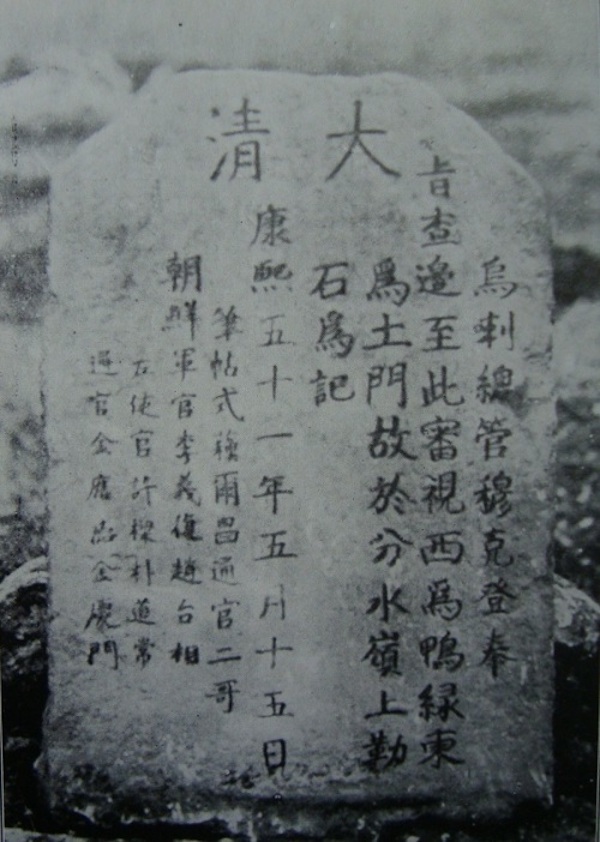 大清
烏喇總管穆克登奉
旨查邊至此審視西爲鴨綠東
爲土門故於分水嶺上勒
石爲記
康熙五十一年五月十五日
筆帖式蘓爾昌通官二哥
朝鮮軍官李義復趙台相
差使官許樑朴道常
通官金應瀗金慶門